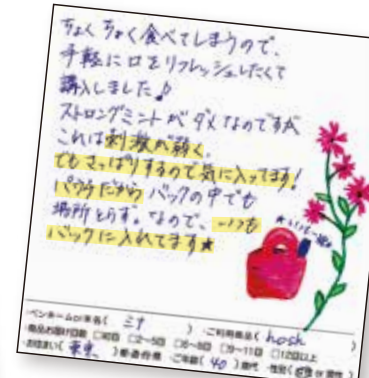 ちょくちょく食べてしまうので、
手軽に口をリフレッシュしたくて
購入しました♪
ストロングミントがダメなのですが
これは刺激が弱く、
でもさっぱりするので気に入ってます!
パウチだから バックの中でも
場所とらず。なので、いつも
バックに入れてます★
・ペンネームor本名( ミナ ) ・ご利用商品( hosh )
・商品お届け回数 □初回 □2~5回 □6~8回 □9~11回 □12回以上
・お住まい( 東京、 )都・道・府・県 ・ご年齢( 40 )歳代 ・性別( 女性 or 男性 )